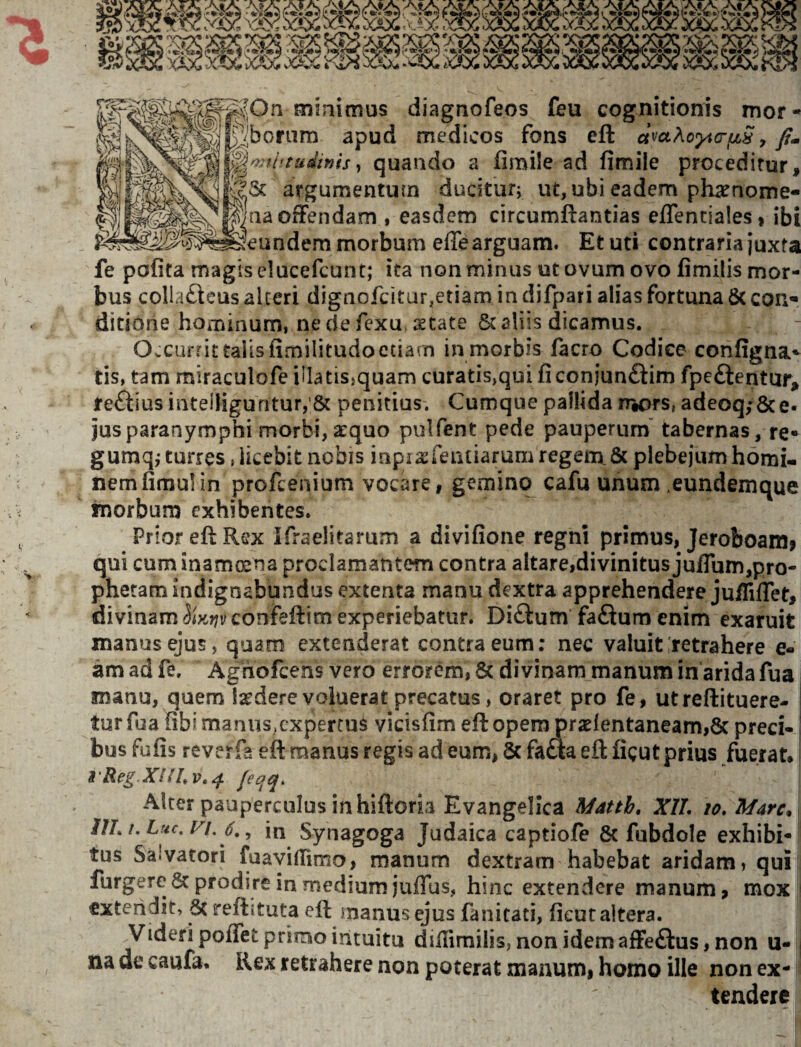 NOn minimus diagnoſeos ſeu cognitionis mor-
borum apud medicos fons eſt ἀναλογισμῦ, ſi-
militudinis, quando a ſimile ad ſimile proceditur,
& argumentum ducitur; ut, ubi eadem phænome-
na offendam, easdem circumſtantias eſſentiales, ibi
eundem morbum eſſe arguam. Et uti contraria juxta
ſe poſita magis eluceſcunt; ita non minus ut ovum ovo ſimilis mor-
bus collacteus alteri dignoſcitur, etiam in diſpari alias fortuna & con-
ditione hominum, ne de ſexu, ætate & aliis dicamus.
Occurrit talis ſimilitudo etiam in morbis ſacro Codice conſigna-
tis, tam miraculoſe illatis, quam curatis, qui ſi conjunctim ſpectentur,
rectius intelliguntur, & penitius. Cumque pallida mors, adeoq; & e-
jus paranymphi morbi, æquo pulſent pede pauperum tabernas, re-
gumq; turres, licebit nobis inpræſentiarum regem & plebejum homi-
nem ſimul in proſcenium vocare, gemino caſu unum eundemque
morbum exhibentes.
Prior eſt Rex Iſraelitarum a diviſione regni primus, Jeroboam,
qui cum inamœna proclamantem contra altare, divinitus juſſum, pro-
phetam indignabundus extenta manu dextra apprehendere juſſiſſet,
divinam δίκην confeſtim experiebatur. Dictum factum enim exaruit
manus ejus, quam extenderat contra eum: nec valuit retrahere e-
am ad ſe. Agnoſcens vero errorem, & divinam manum in arida ſua
manu, quem lædere voluerat precatus, oraret pro ſe, ut reſtituere-
tur ſua ſibi manus, expertus viciſſim eſt opem præſentaneam, & preci-
bus fuſis reverſa eſt manus regis ad eum, & facta eſt ſicut prius fuerat.
1 Reg. XIII. v. 4 ſeqq.
Alter pauperculus in hiſtoria Evangelica Matth. XII. 10. Marc.
III. 1. Luc. VI. 6., in Synagoga Judaica captioſe & ſubdole exhibi-
tus Salvatori ſuaviſſimo, manum dextram habebat aridam, qui
ſurgere & prodire in medium juſſus, hinc extendere manum, mox
extendit, & reſtituta eſt manus ejus ſanitati, ſicut altera.
Videri poſſet primo intuitu diſſimilis, non idem affectus, non u-
na de cauſa. Rex retrahere non poterat manum, homo ille non ex-
tendere